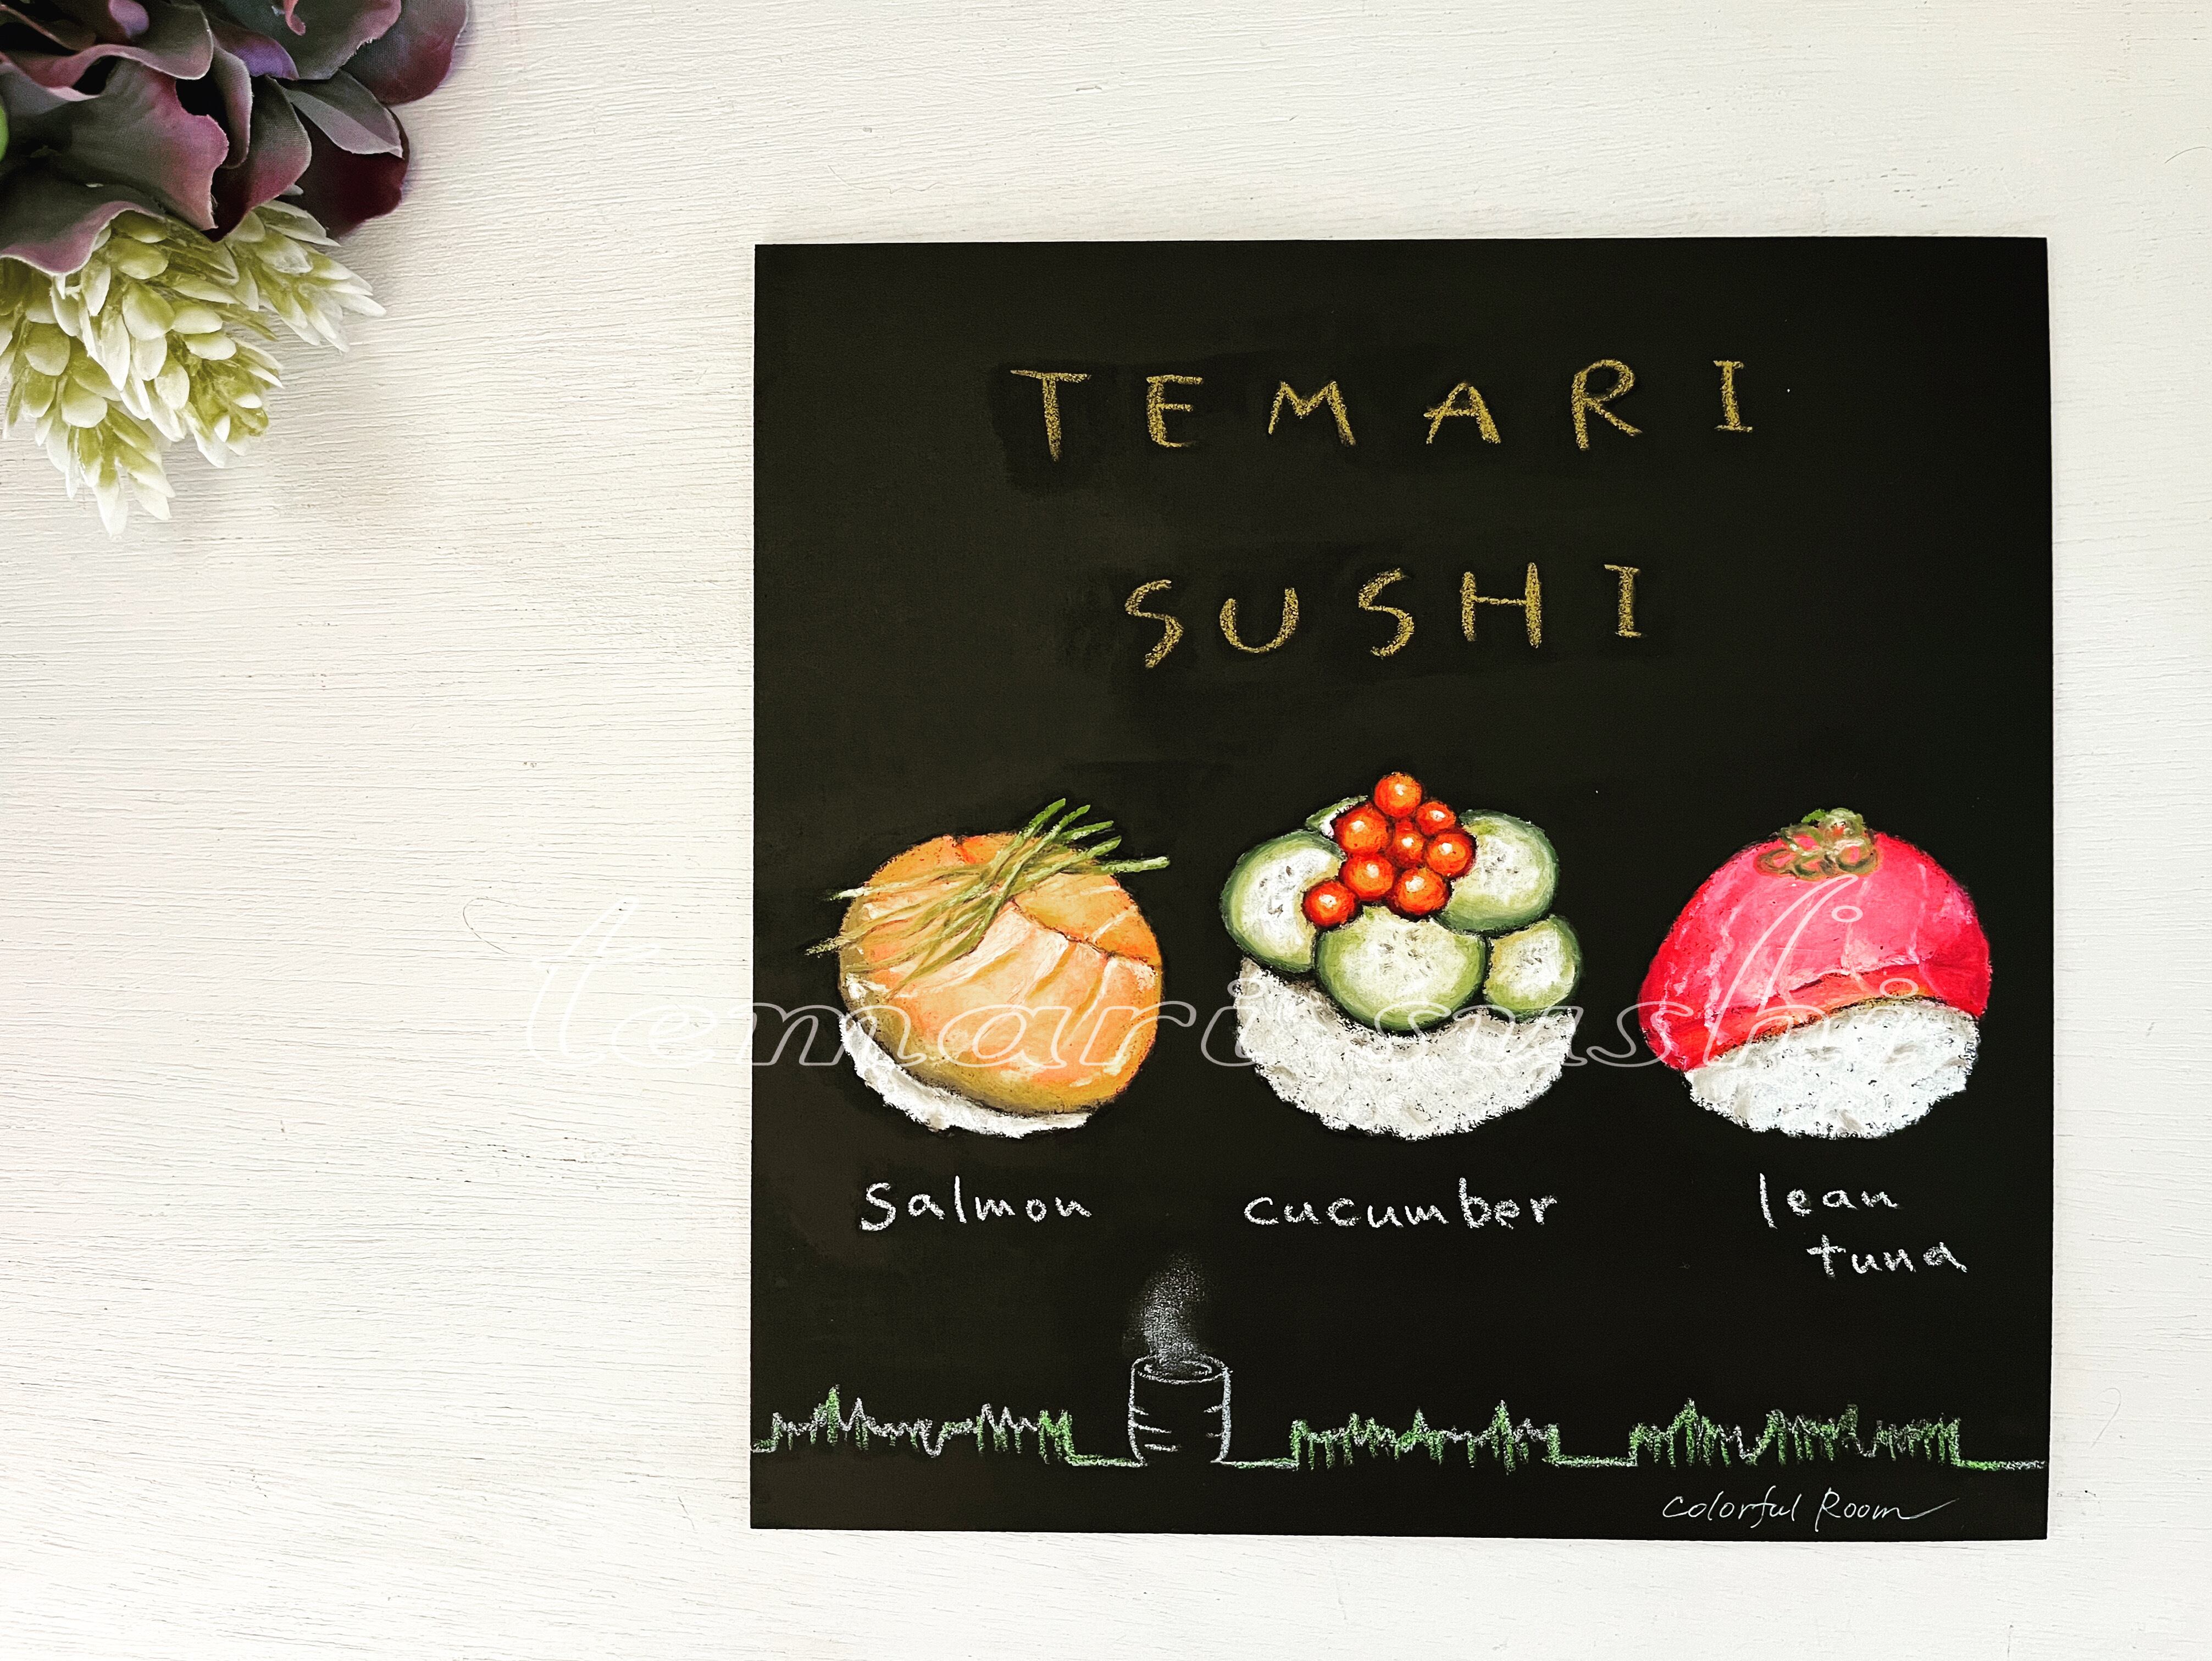 TEMARI
SUSHI
Temari sushi
salmon
cucumber
lean
tuna
Colorful Room